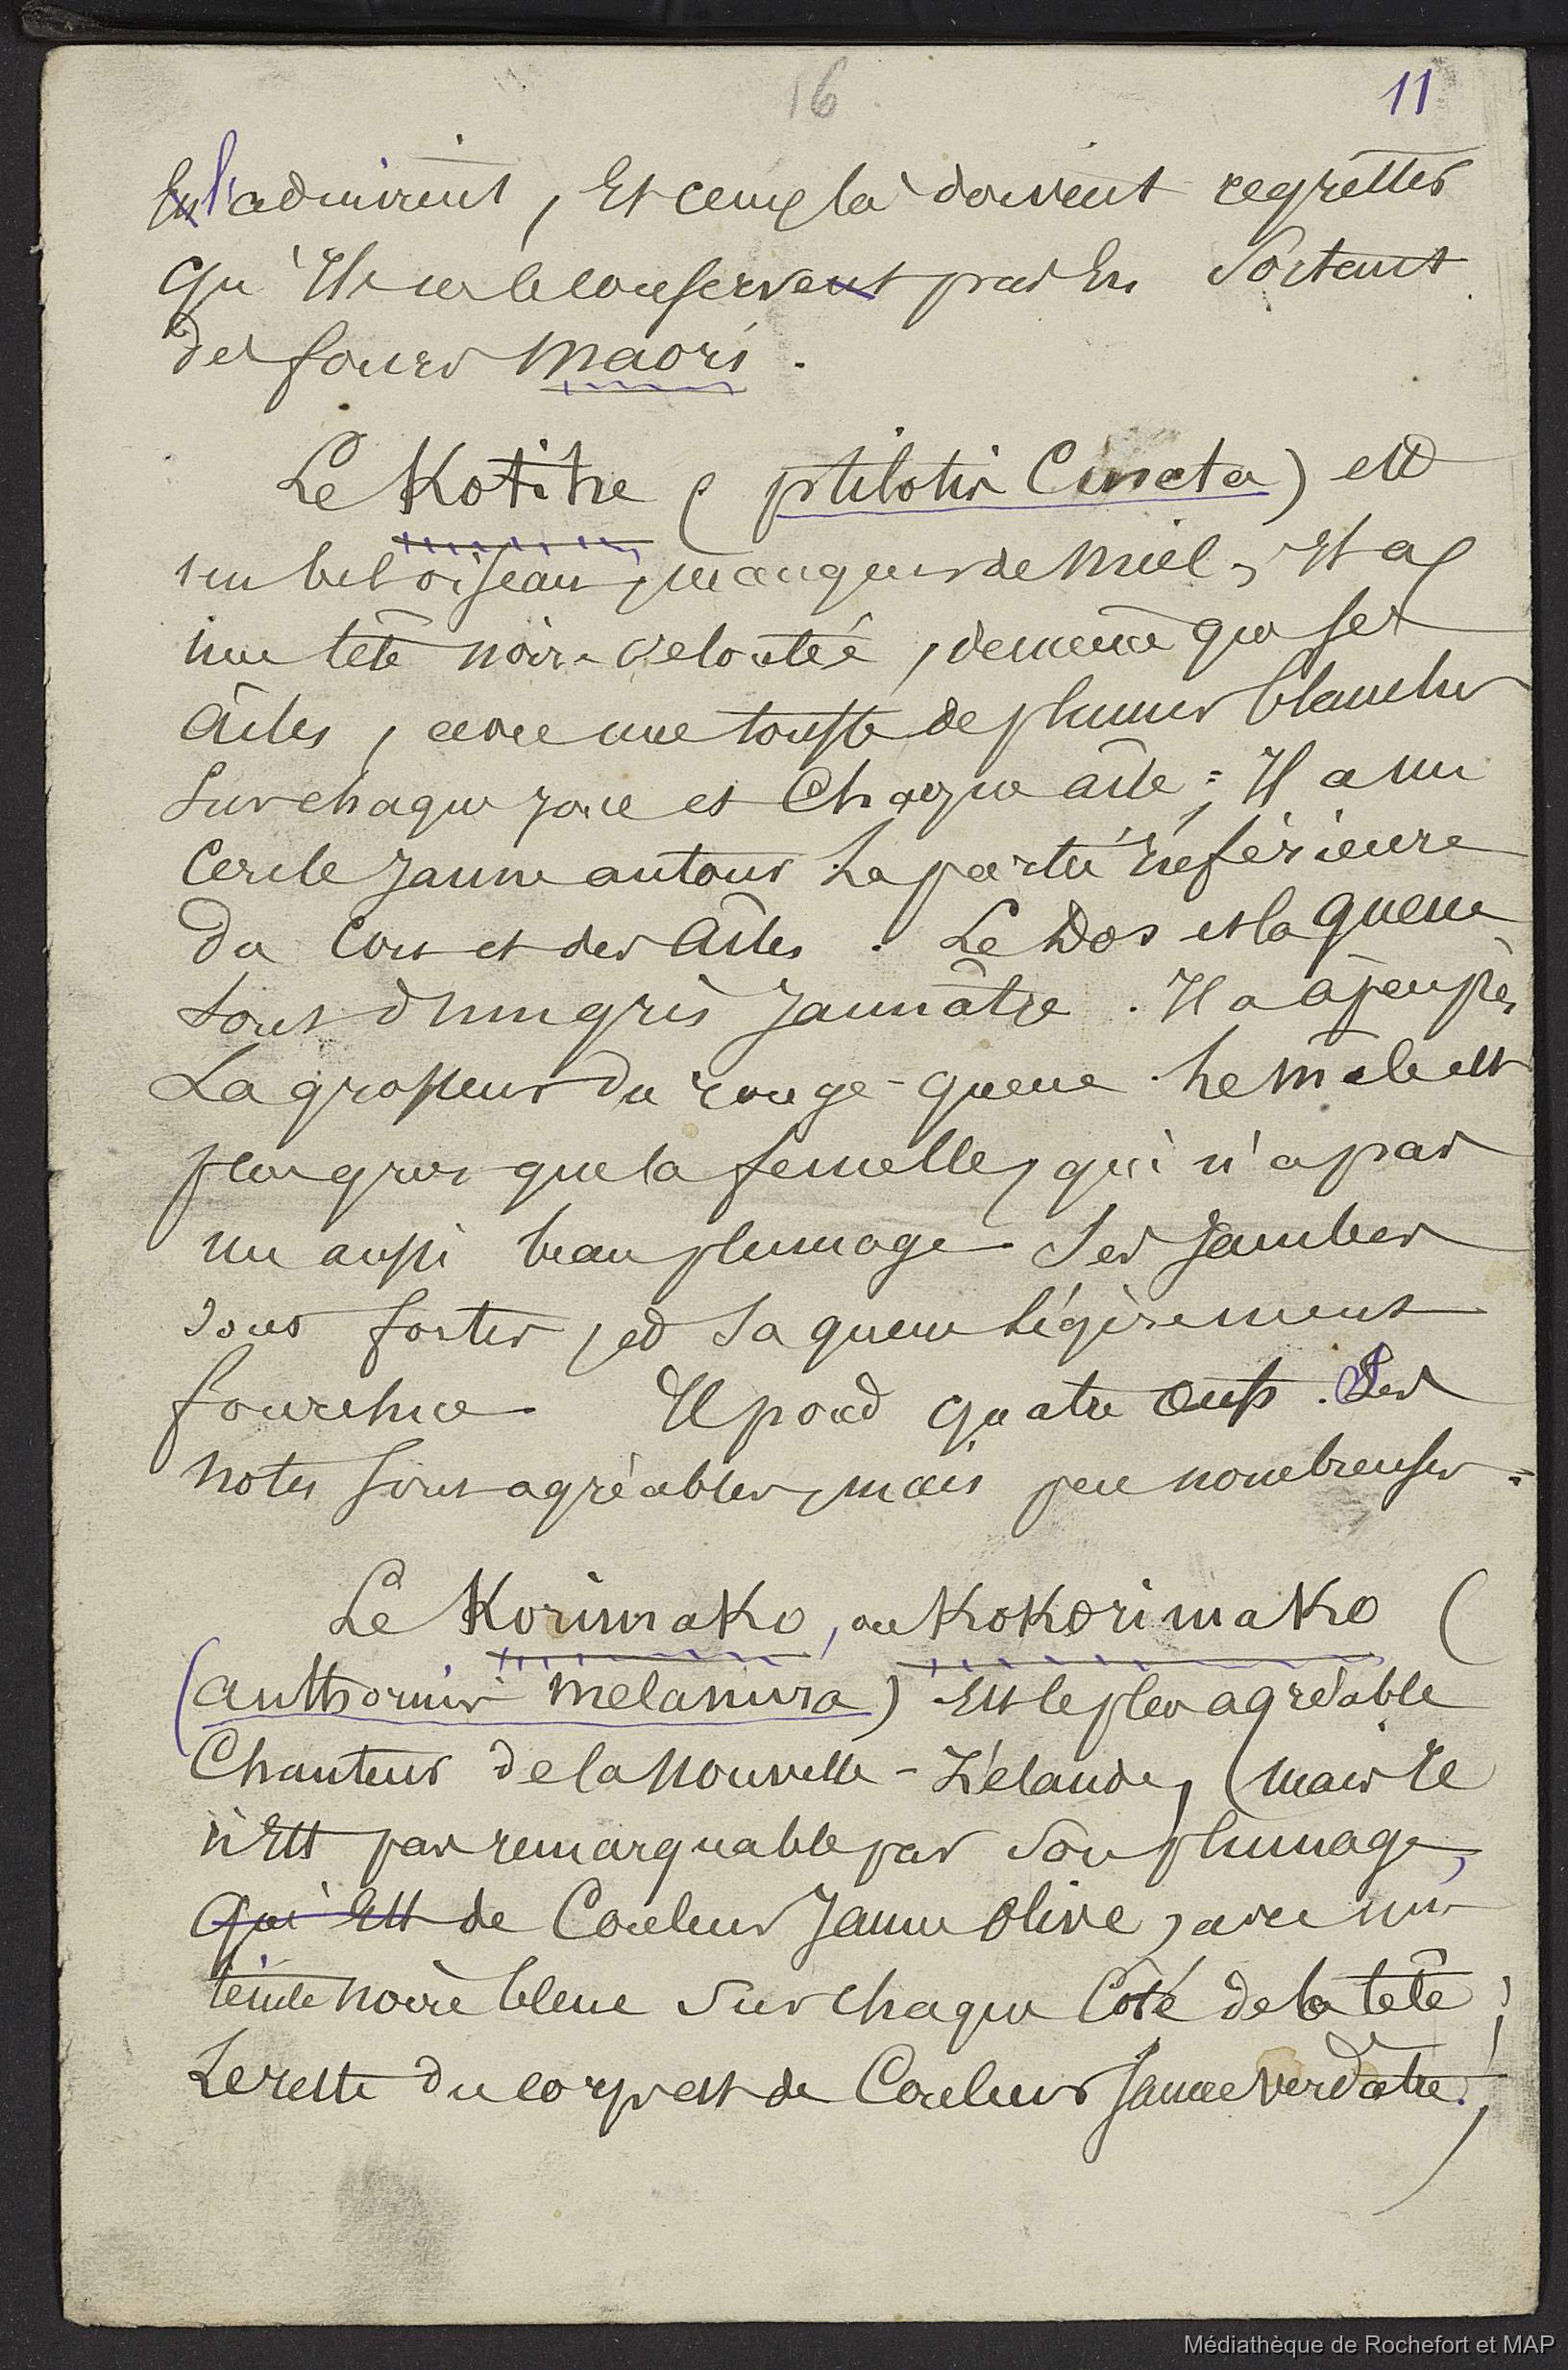 16
11
l'admirent, Et ceux là doivent regretter
qu'Ils ne le conservent pas En Sortant
des fours Maori.
Le Kotihe (ptilotis Cincta) est
un bel oiseau, mangeur de Miel, Il a
une tête noire veloutée, de même que ses
Âiles, avec une touffe de plumes blanches
Sur chaque joue et Chaque aîle; Il a un
Cercle Jaune autour La partie Inférieure
Du Cou et des Aîles. Le Dos et la queue
Sont d'un gris Jaunâtre. Il a à peu près
La grosseur du rouge-queue. Le mâle est
plus gros que la femelle, qui n'a pas
un aussi beau plumage. Ses Jambes
sont fortes, et Sa queue légèrement
fourchue. Il pond quatre œufs. Ses
notes sont agréables, mais peu nombreuses.
Le Korimako, ou Kokorimako (
(anthornis melanura) Est le plus agréable
Chanteur de la Nouvelle-Zélande, (mais Il
n'Est pas remarquable par Son plumage,
qui Est de Couleur Jaune Olive, avec une
teinte noire bleue Sur chaque Côté de la tête;
Le reste du corps est de Couleur Jaune verdâtre.)
Médiathèque de Rochefort et MAP